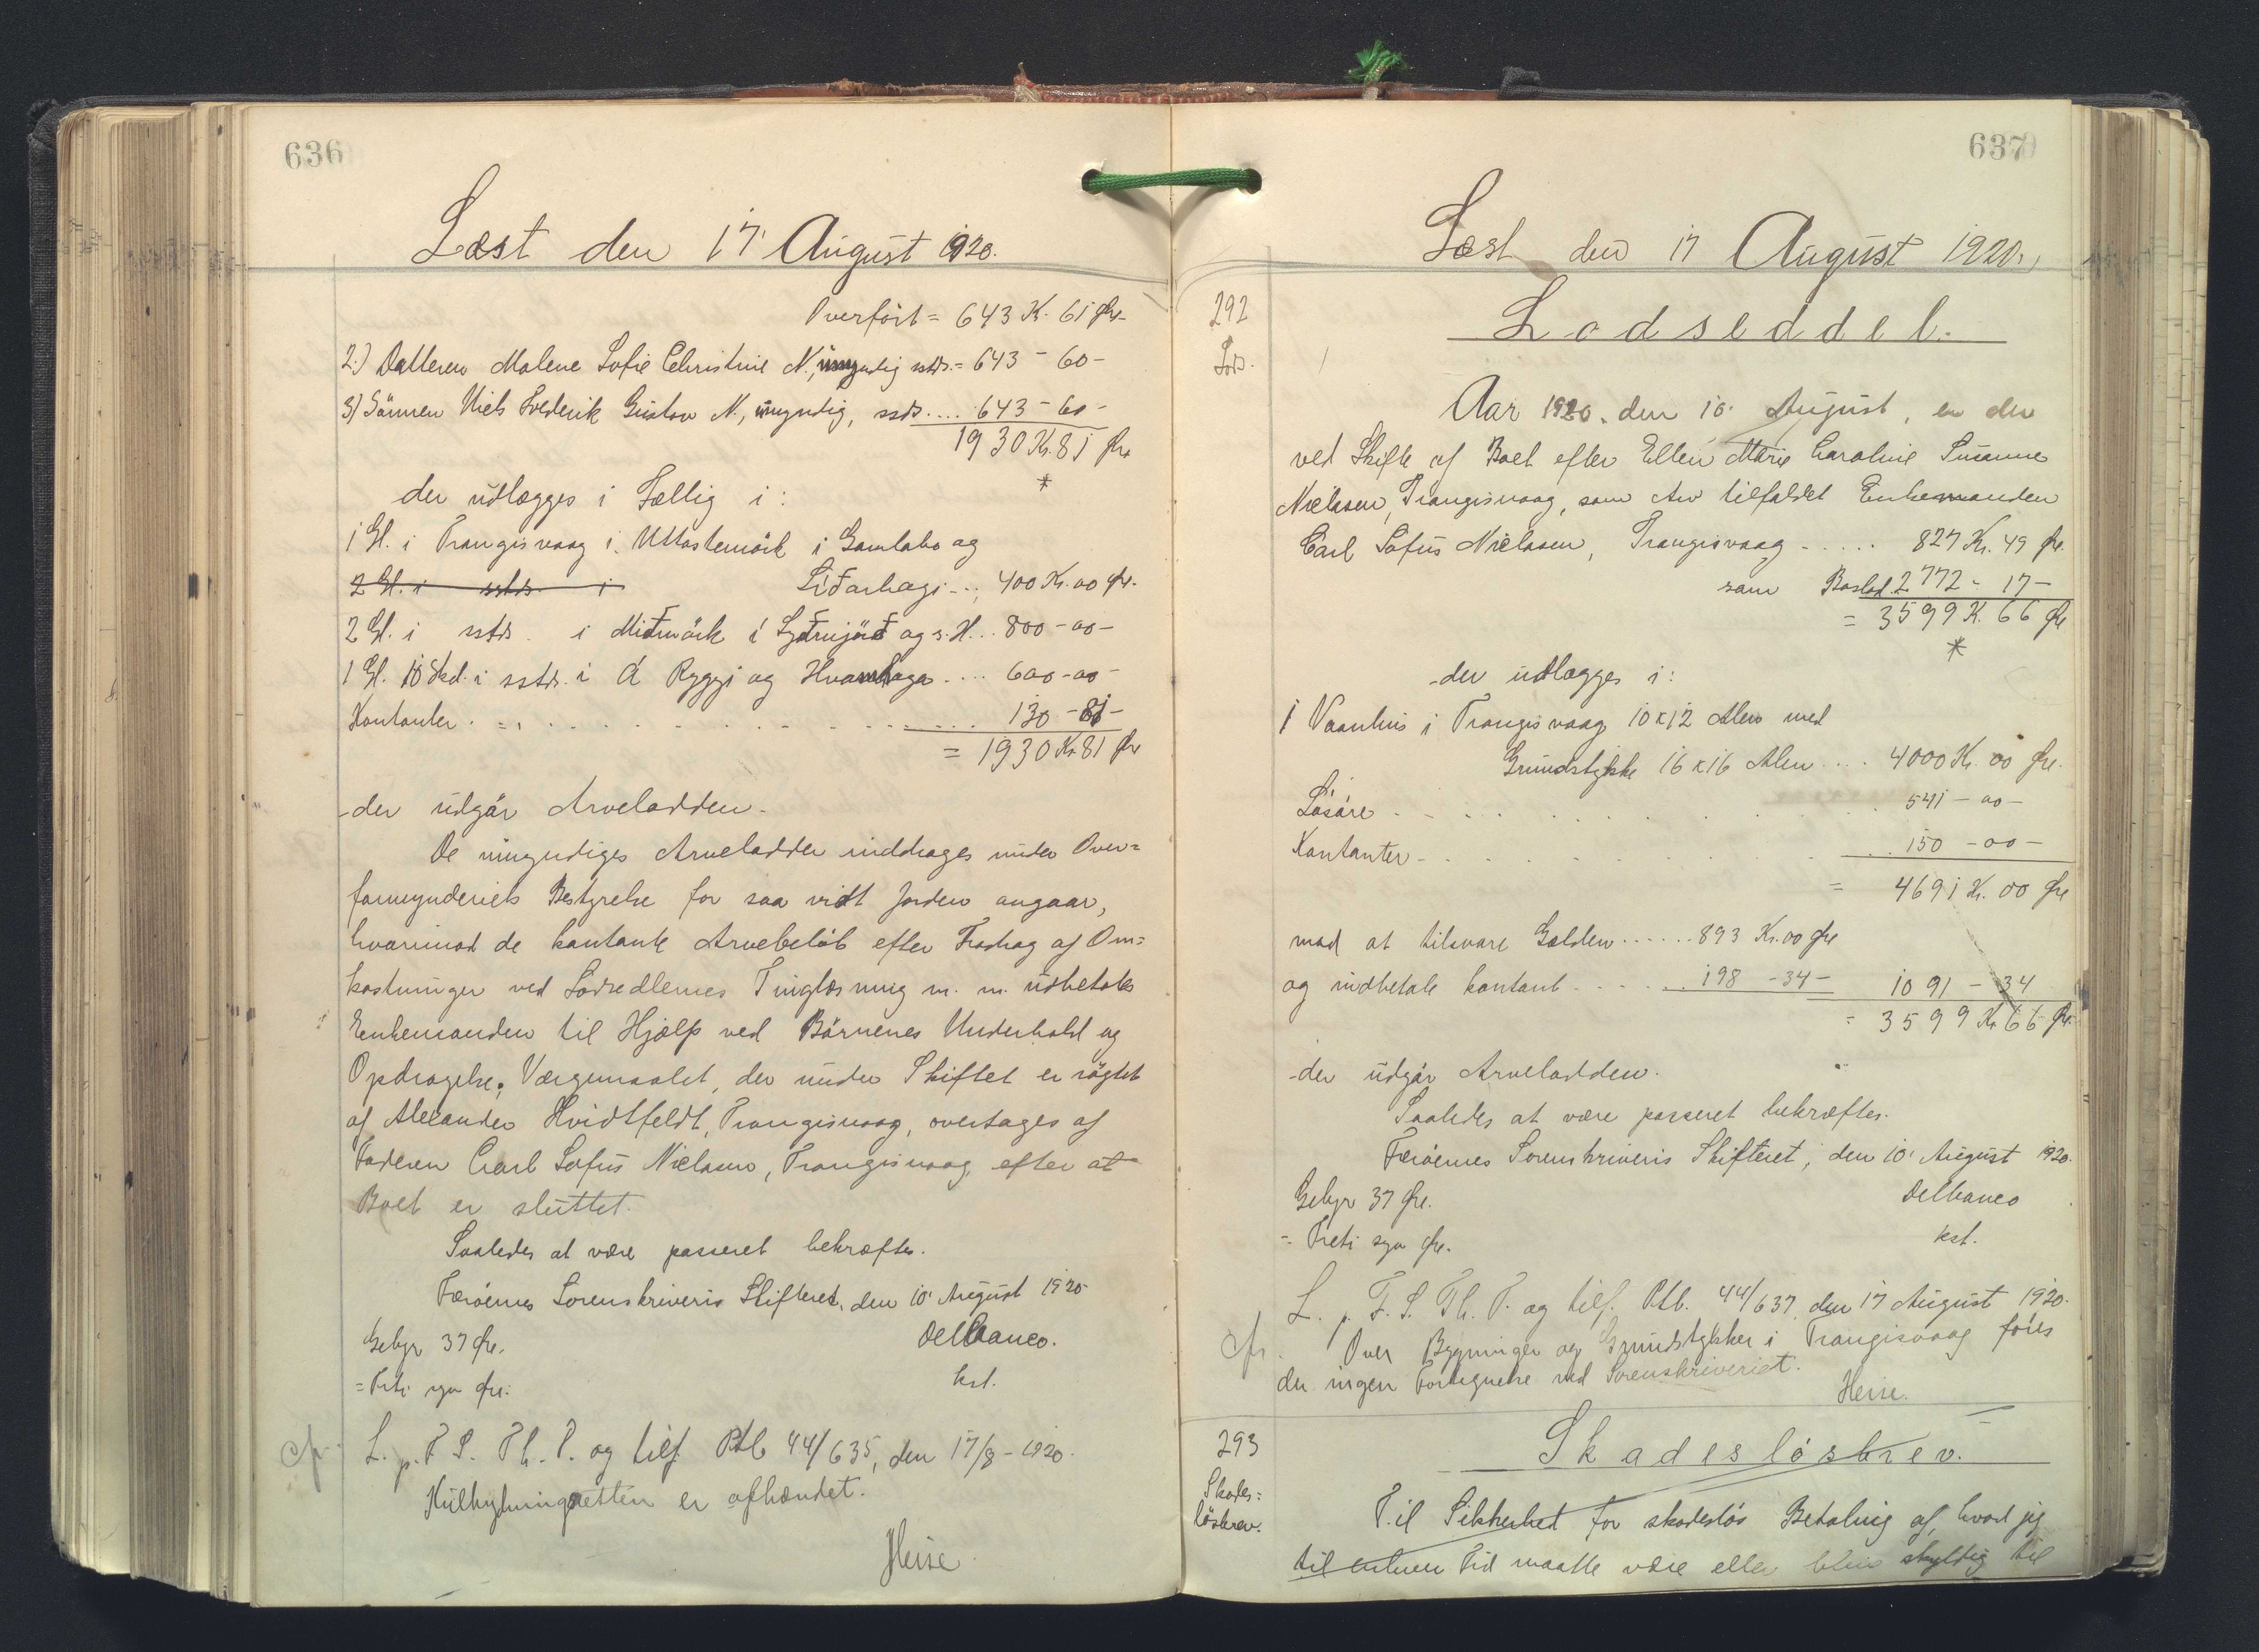 636
Læst den 17' August 1920.
Overført = 643 K. 61 Øre
2.) Datteren Malene Sofie Christine N., umyndig sstds. = 643 - 60 -
3) Sønnen Niels Frederik Gustav N., umyndig, sstds .... 643 - 60 -
1930 Kr. 81 Øre
*
der udlægges i Fællig i:
1 Gl. i Trangisvaag i Uttastemörk i Gamlabø og
2 Gl. i sstds. i Liđarhagi ... 400 Kr. 00 Øre.
2 Gl. i sstds. i Miđmörk i Lyđrujörđ og s. H... 800 - 00 -
1 Gl. 10 Skd. i sstds. i á Ryggi og Hvannhaga .... 600 - 00 -
Kontanter ... 130 - 81 -
= 1930 Kr 81 Øre
- der udgør Arvelodden.
De umyndiges Arvelodder inddrages under Over=
formynderiets Bestyrelse for saa vidt Jorden angaar,
hvorimod de kontante Arvebeløb efter Fradrag af Om=
kostninger ved Lodsedlernes Tinglæsning m. m. udbetales
Enkemanden til Hjælp ved Børnenes Underhold og
Opdragelse; Værgemaalet, der under Skiftet er røgtet
af Alexander Hvidtfeldt, Trangisvaag, overtages af
Faderen Carl Sofus Nielsen, Trangisvaag, efter at
Boet er sluttet.
Saaledes at være passeret bekræftes.
Færøernes Sorenskriveris Skifteret, den 10' August 1920
Gebyr 37 Øre. Delbanco.
= Treti syv Øre. kst.
cfr. L. p. F. S. Th. P. og tilf. Ptb 44/635, den 17/8 - 1920.
Kulbrydningsretten er afhændet.
Heise.
637
Læst den 17 August 1920.
292 Lodseddel.
Lods.
Aar 1920. den 10' August, er der
ved Skifte af Boet efter Ellen Marie Caroline Susanne
Nielsen, Trangisvaag, som Arv tilfaldet Enkemanden
Carl Sofus Nielsen, Trangisvaag ..... 827 Kr. 49 Øre.
som Boslod 2772 - 17 -
= 3599 K. 66 Øre
*
- der udlægges i:
1 Vaanhus i Trangisvaag 10 x 12 Alen med
Grundstykke 16 x 16 Alen .... 4000 Kr. 00 Øre.
Løsøre ... 541 - 00 -
Kontanter ... 150 - 00 -
= 4691 K. 00 Øre
mod at tilsvare Gælden ...... 893 Kr. 00 Øre
og indbetale kontant ..... 198 - 34 - 1091 - 34
= 3599 Kr 66 Øre
- der udgør Arvelodden.
Saaledes at være passeret bekræftes.
Færøernes Sorenskriveris Skifteret, den 10' August 1920.
Gebyr 37 Øre. Delbanco
= Treti syv Øre. kst.
L. p. F. S. Th. P. og tilf. Ptb. 44/637, den 17 August 1920.
cfr. Over Bygninger og Grundstykker i Trangisvaag føres
der ingen Fortegnelse ved Sorenskriveriet.
Heise.
293 Skadesløsbrev.
Skades=
løsbrev. Til Sikkerhed for skadesløs Betaling af, hvad jeg
til enhver Tid maatte være eller blive skyldig til